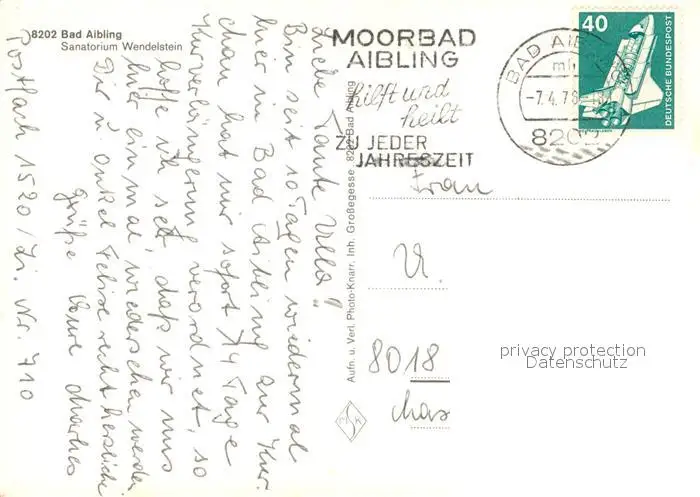 8202 Bad Aibling
Sanatorium Wendelstein
Liebe Tante Ulla!
Bin seit 10 Tagen wiedermal
hier in Bad Aibling zur Kur.
hat mir sofort 14 Tage
Kurverlängerung verordnet, so
hoffe ich sehr, daß wir uns
hier einmal wiedersehen werden
Dir u. Onkel recht herzliche
Grüße Deine
Postfach 1520/Zi. Nr. 710
Aufn. u. Verl. Photo-Knarr, Inh. Großegesse, 8202 Bad Aibling
MOORBAD
AIBLING
hilft und
heilt
ZU JEDER
JAHRESZEIT
BAD AIB
-7.4.76
8202
40
DEUTSCHE BUNDESPOST
Frau
U.
8018
privacy protection
Datenschutz